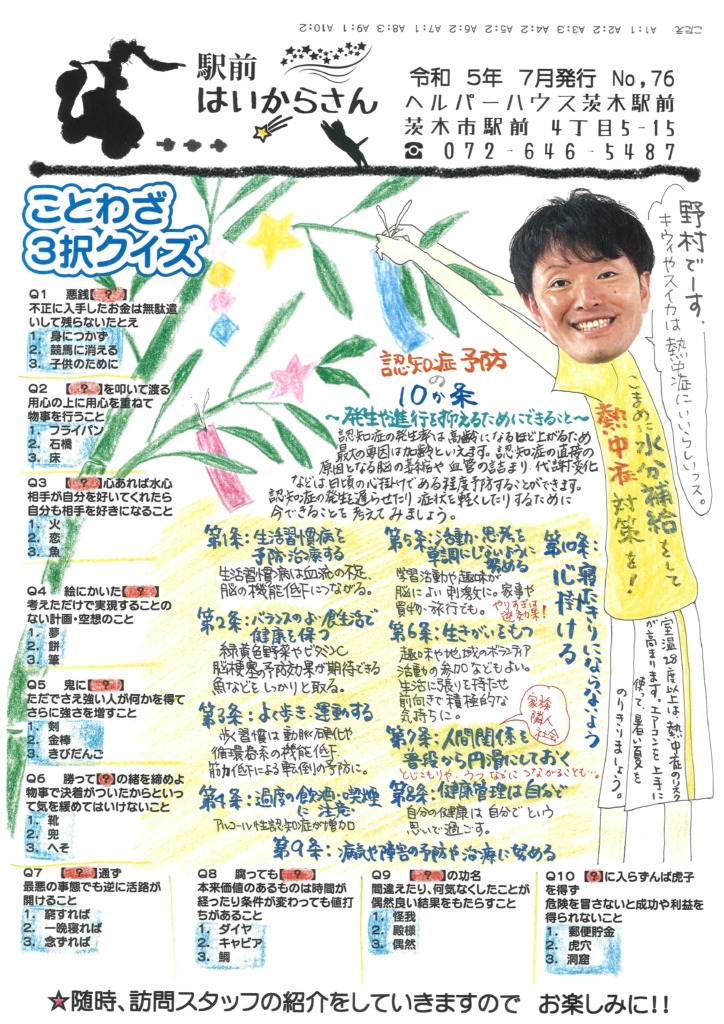 こたえ A1:1 A2:2 A3:3 A4:2 A5:2 A6:2 A7:1 A8:3 A9:1 A10:2
駅前
はいからさん
令和 5年 7月発行 No,76
ヘルパーハウス茨木駅前
茨木市駅前 4丁目5-15
☎ 072-646-5487
ことわざ
3択クイズ
Q1 悪銭【?】
不正に入手したお金は無駄遣
いして残らないたとえ
1. 身につかず
2. 競馬に消える
3. 子供のために
Q2 【?】を叩いて渡る
用心の上に用心を重ねて
物事を行うこと
1. フライパン
2. 石橋
3. 床
Q3 【?】心あれば水心
相手が自分を好いてくれたら
自分も相手を好きになること
1. 火
2. 恋
3. 魚
Q4 絵にかいた【?】
考えただけで実現することの
ない計画・空想のこと
1. 夢
2. 餅
3. 筆
Q5 鬼に【?】
ただでさえ強い人が何かを得て
さらに強さを増すこと
1. 剣
2. 金棒
3. きびだんご
Q6 勝って【?】の緒を締めよ
物事で決着がついたからといっ
て気を緩めてはいけないこと
1. 靴
2. 兜
3. へそ
Q7 【?】通ず
最悪の事態でも逆に活路が
開けること
1. 窮すれば
2. 一晩寝れば
3. 念ずれば
Q8 腐っても【?】
本来価値のあるものは時間が
経ったり条件が変わっても値打
ちがあること
1. ダイヤ
2. キャビア
3. 鯛
Q9 【?】の功名
間違えたり、何気なくしたことが
偶然良い結果をもたらすこと
1. 怪我
2. 殿様
3. 偶然
Q10 【?】に入らずんば虎子
を得ず
危険を冒さないと成功や利益を
得られないこと
1. 郵便貯金
2. 虎穴
3. 洞窟
認知症予防
の
10か条
～発生や進行を抑えるためにできること～
認知症の発生率は高齢になるほど上がるため
最大の要因は加齢といえます。認知症の直接の
原因となる脳の萎縮や血管の詰まり、代謝変化
などは日頃の心掛けである程度予防することができます。
認知症の発生を遅らせたり症状を軽くしたりするために
今できることを考えてみましょう。
第1条:生活習慣病を
予防・治療する
生活習慣病は血流の不足、
脳の機能低下につながる。
第2条:バランスのよい食生活で
健康を保つ
緑黄色野菜やビタミンC
脳梗塞の予防効果が期待できる
魚などをしっかりと取る。
第3条:よく歩き、運動する
歩く習慣は動脈硬化や
循環器系の機能低下、
筋力低下による転倒の予防に。
第4条:過度の飲酒・喫煙
に注意
アルコール性認知症が増加
第5条:活動・思考を
単調にしないように
努める
学習活動や趣味が
脳によい刺激に。家事や
買物・旅行でも。
やりすぎは
逆効果!
第6条:生きがいをもつ
趣味や地域のボランティア
活動の参加などもよい。
生活に張りを持たせ
前向きで積極的な
気持ちに。
家族
隣人
社会
第7条:人間関係を
普段から円滑にしておく
とじこもりや、うつなどにつながることも…
第8条:健康管理は自分で
自分の健康は自分でという
思いで過ごす。
第9条:病気や障害の予防や治療に努める
第10条:寝たきりにならないよう
心掛ける
野村でーす。
キウイやスイカは熱中症にいいらしいっス。
こまめに水分補給をして
熱中症対策を!
室温28度以上は、熱中症のリスク
が高まります。エアコンを上手に
使って、暑い夏を
のりきりましょう。
★随時、訪問スタッフの紹介をしていきますので お楽しみに!!